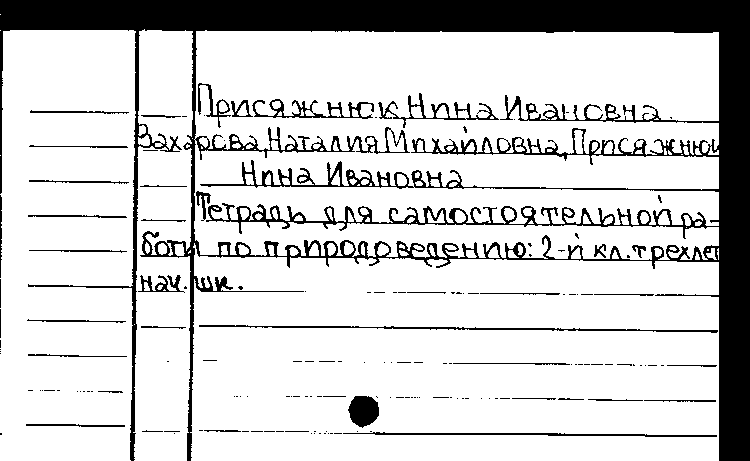 Присяжнюк, Нина Ивановна.
Захарова, Наталия Михайловна, Присяжнюк
Нина Ивановна.
Тетрадь для самостоятельной ра-
боты по природоведению: 2-й кл. трехлет
нач. шк.